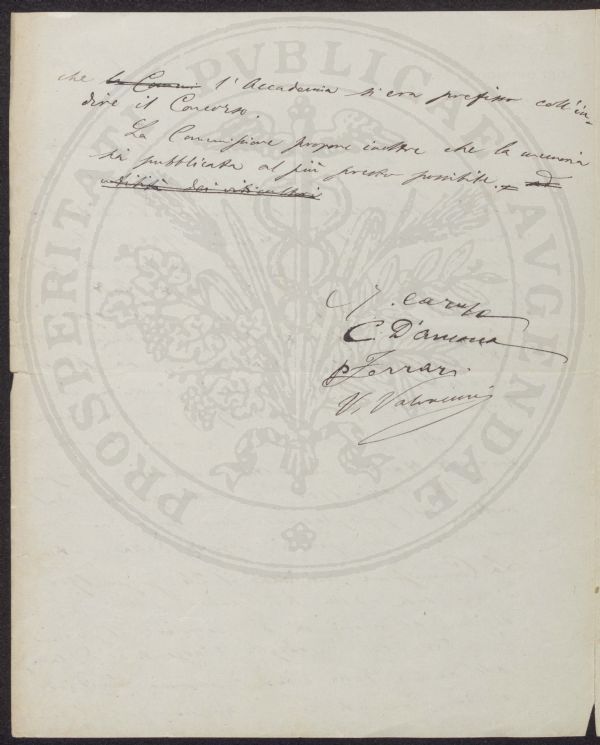 che la Comm. l'Accademia si era prefisso coll'in=
dire il Concorso.
La Commissione propone inoltre che la memoria
sia pubblicata al più presto possibile. ad
utilità dei viticultori
C. D'Ancona
P. Ferrari
V. Valvassori
PROSPERITATI PVBLICAE AVGENDAE